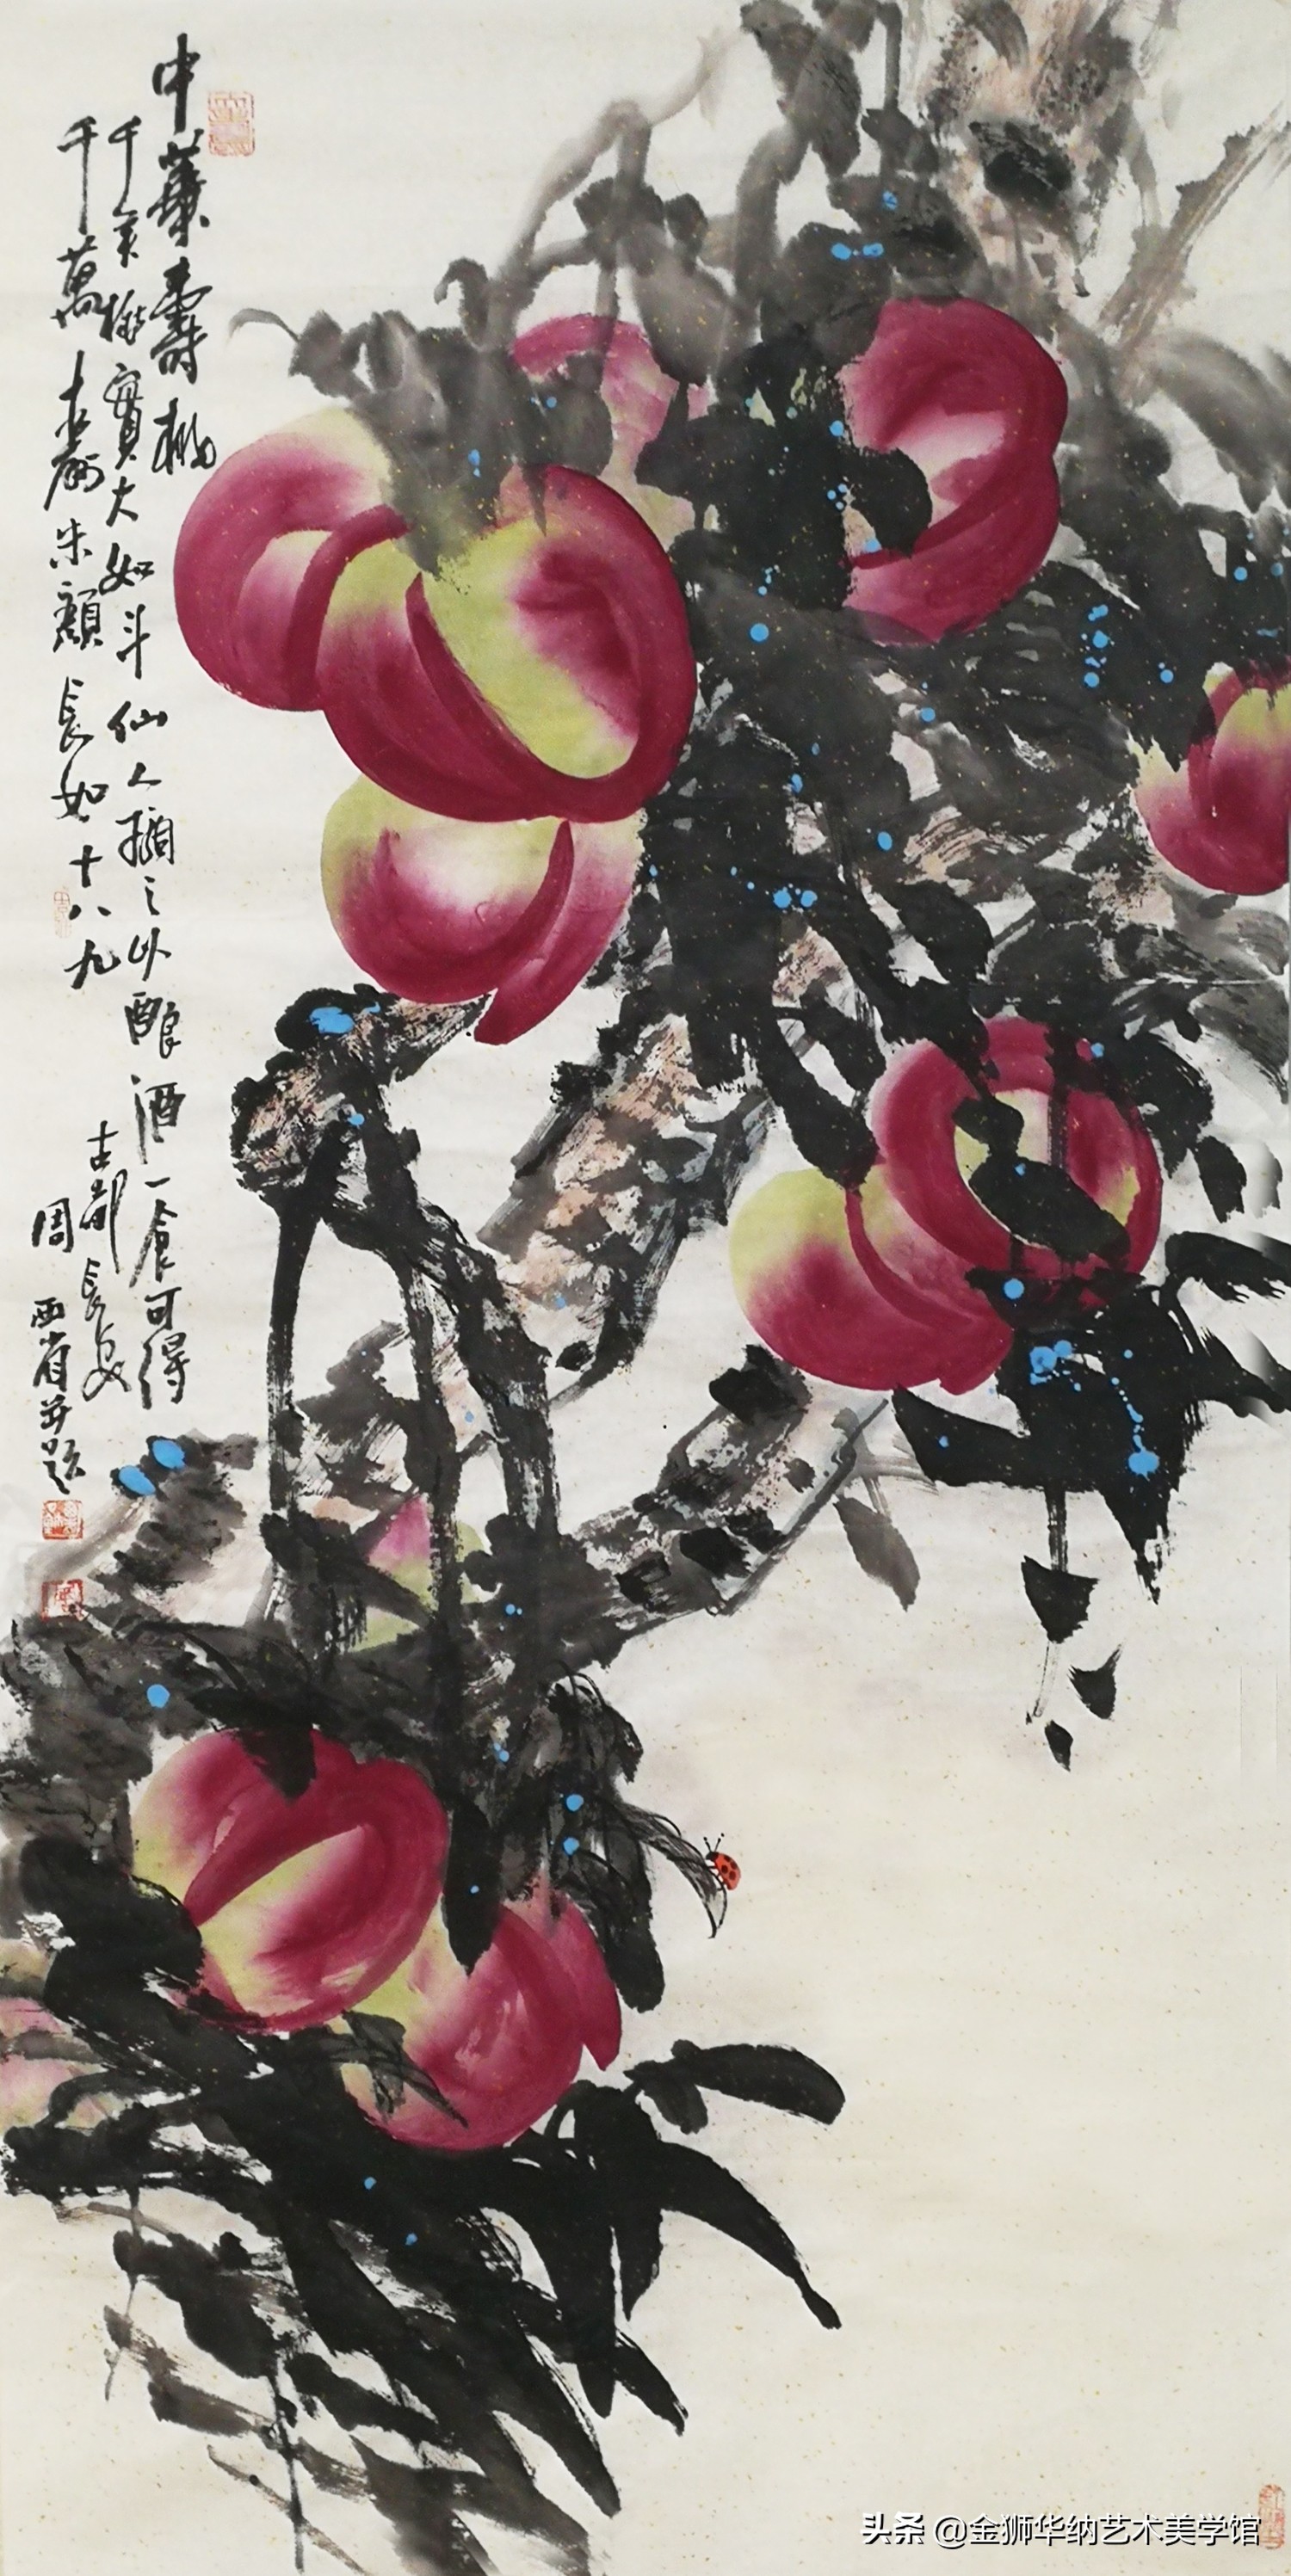 中華壽桃
千年桃實大如斗仙人摘之以釀酒一食可得
千萬壽朱顏長如十八九
古都長安
周西省并题
头条 @金狮华纳艺术美学馆